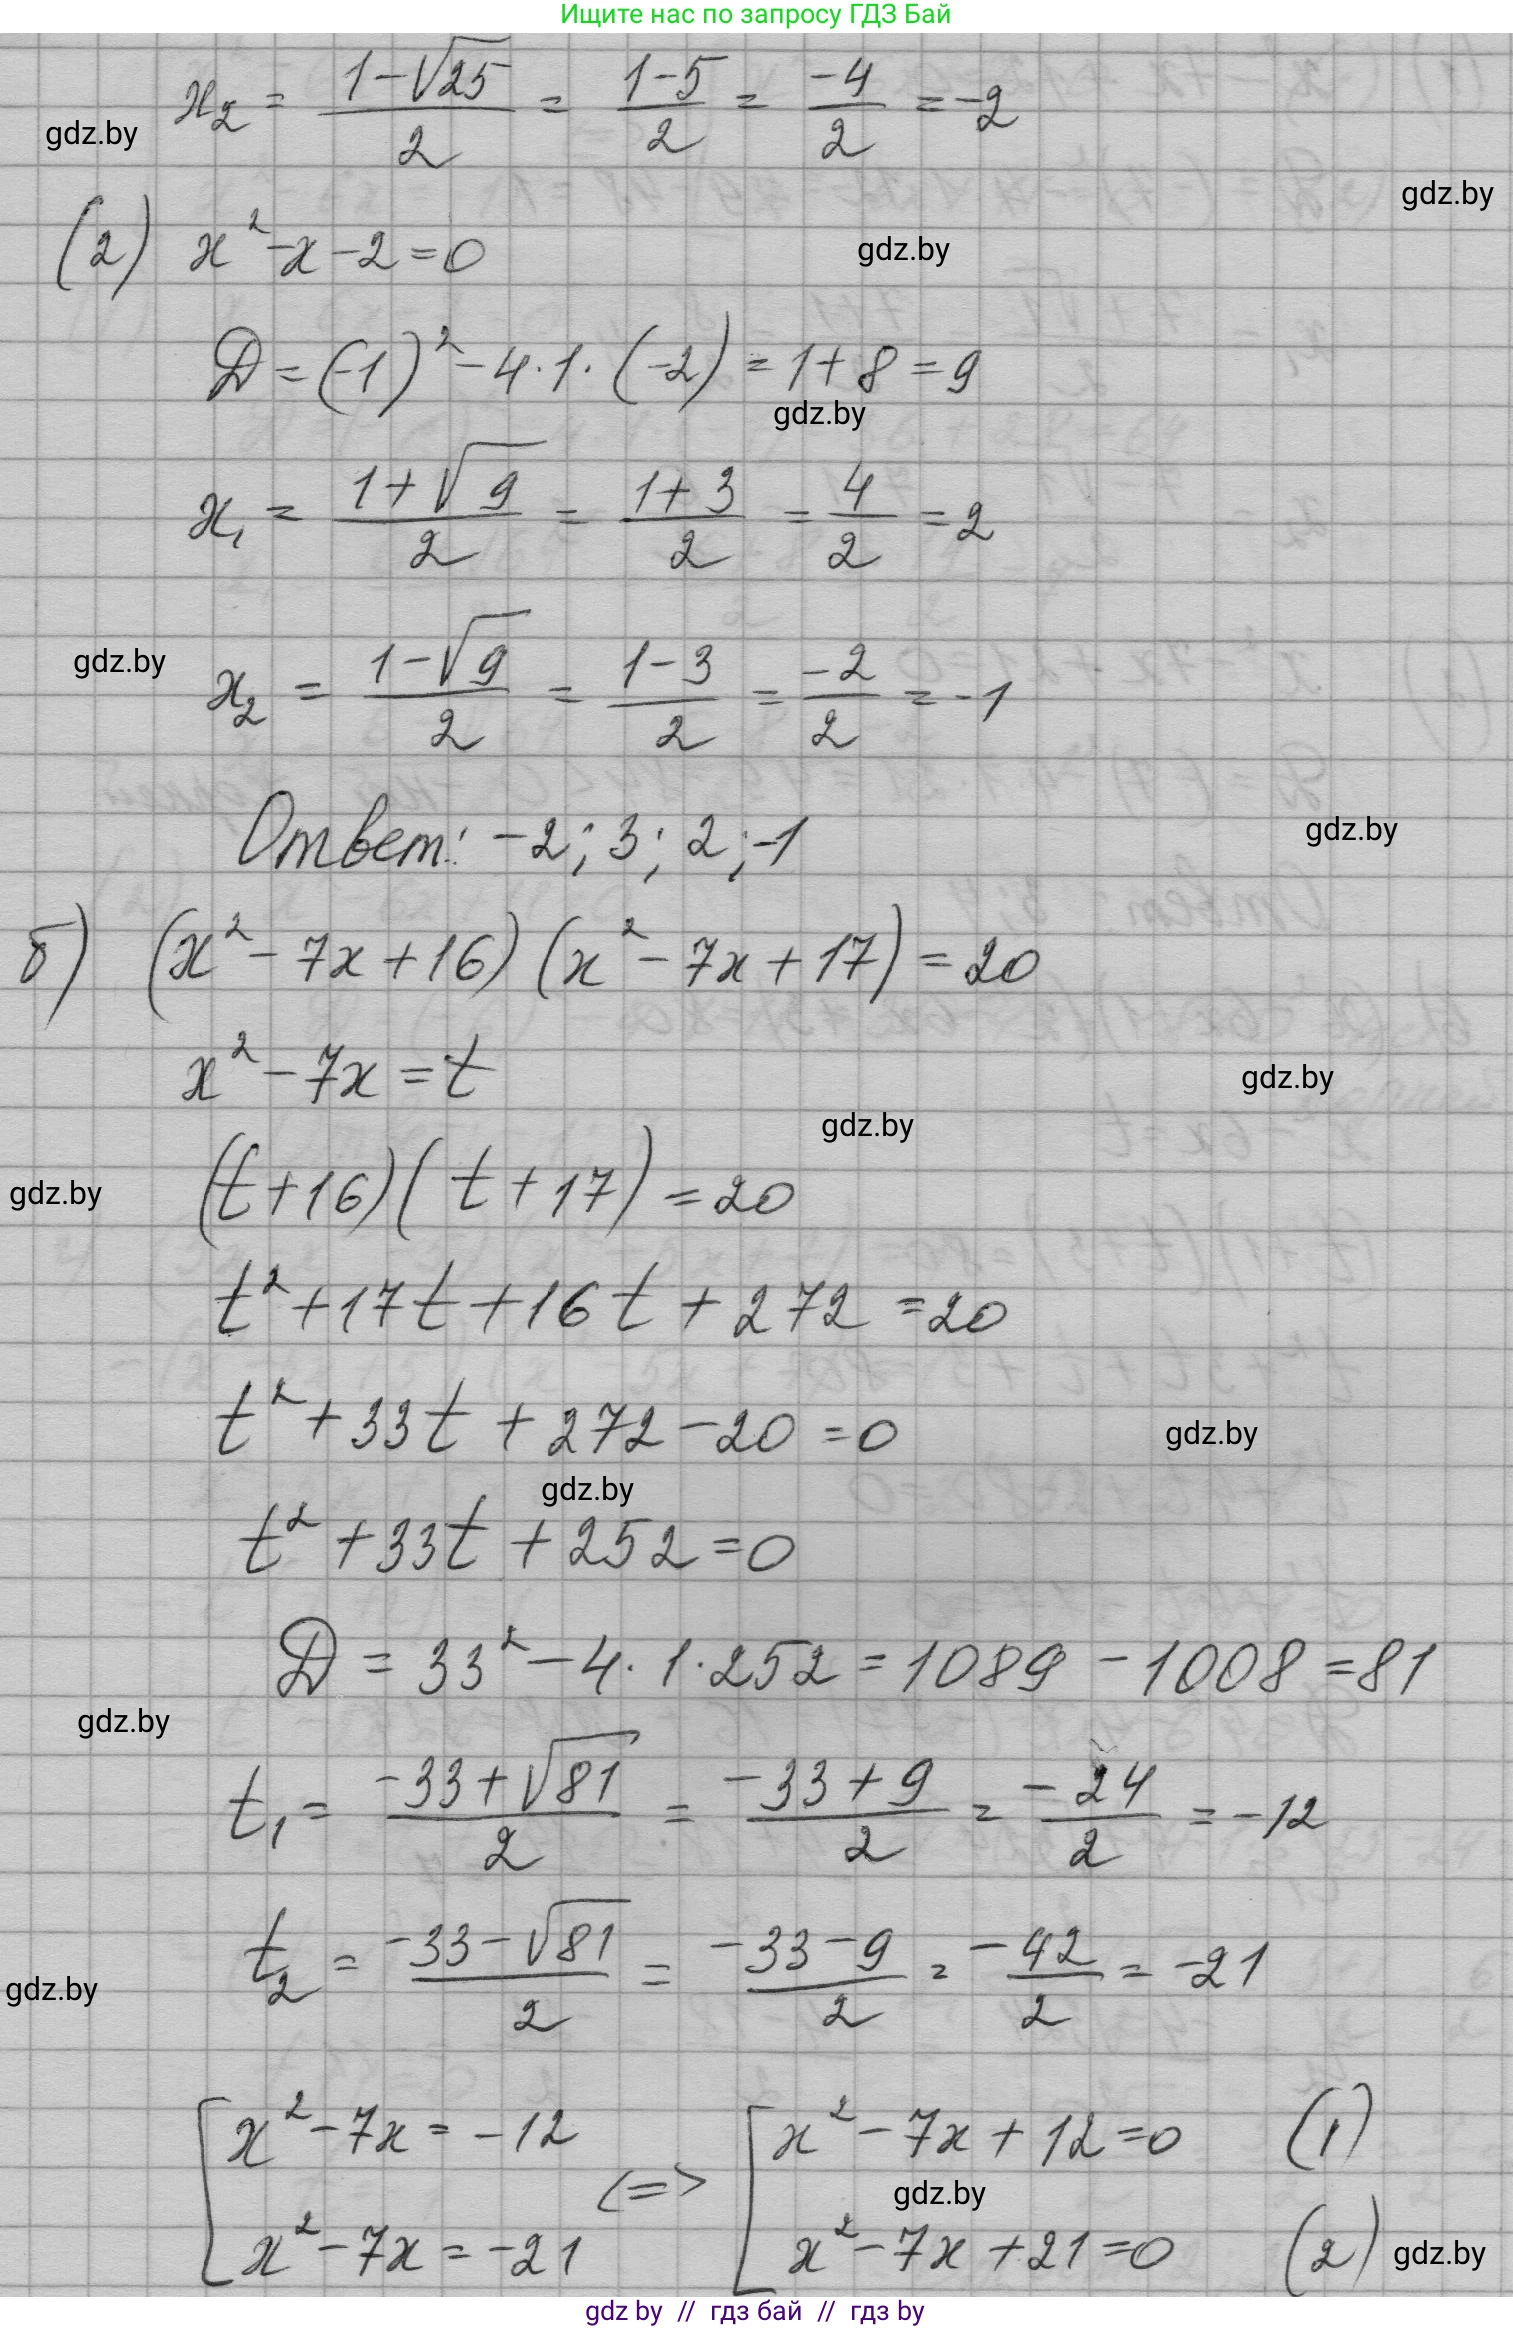 Ищите нас по запросу ГДЗ Бай
x₂ = (1-√25)/2 = (1-5)/2 = -4/2 = -2
gdz.by
gdz.by
(2) x²-x-2=0
gdz.by
D=(-1)²-4·1·(-2)=1+8=9
gdz.by
x₁ = (1+√9)/2 = (1+3)/2 = 4/2 = 2
gdz.by
x₂ = (1-√9)/2 = (1-3)/2 = -2/2 = -1
Ответ: -2; 3; 2; -1
gdz.by
б) (x²-7x+16)(x²-7x+17)=20
x²-7x=t
gdz.by
gdz.by
(t+16)(t+17)=20
gdz.by
t²+17t+16t+272=20
t²+33t+272-20=0
gdz.by
gdz.by
t²+33t+252=0
D=33²-4·1·252=1089-1008=81
gdz.by
t₁ = (-33+√81)/2 = (-33+9)/2 = -24/2 = -12
t₂ = (-33-√81)/2 = (-33-9)/2 = -42/2 = -21
gdz.by
[x²-7x=-12 [x²-7x+12=0 (1)
<=>
gdz.by
x²-7x=-21 x²-7x+21=0 (2)
gdz.by
gdz by // гдз бай // гдз by